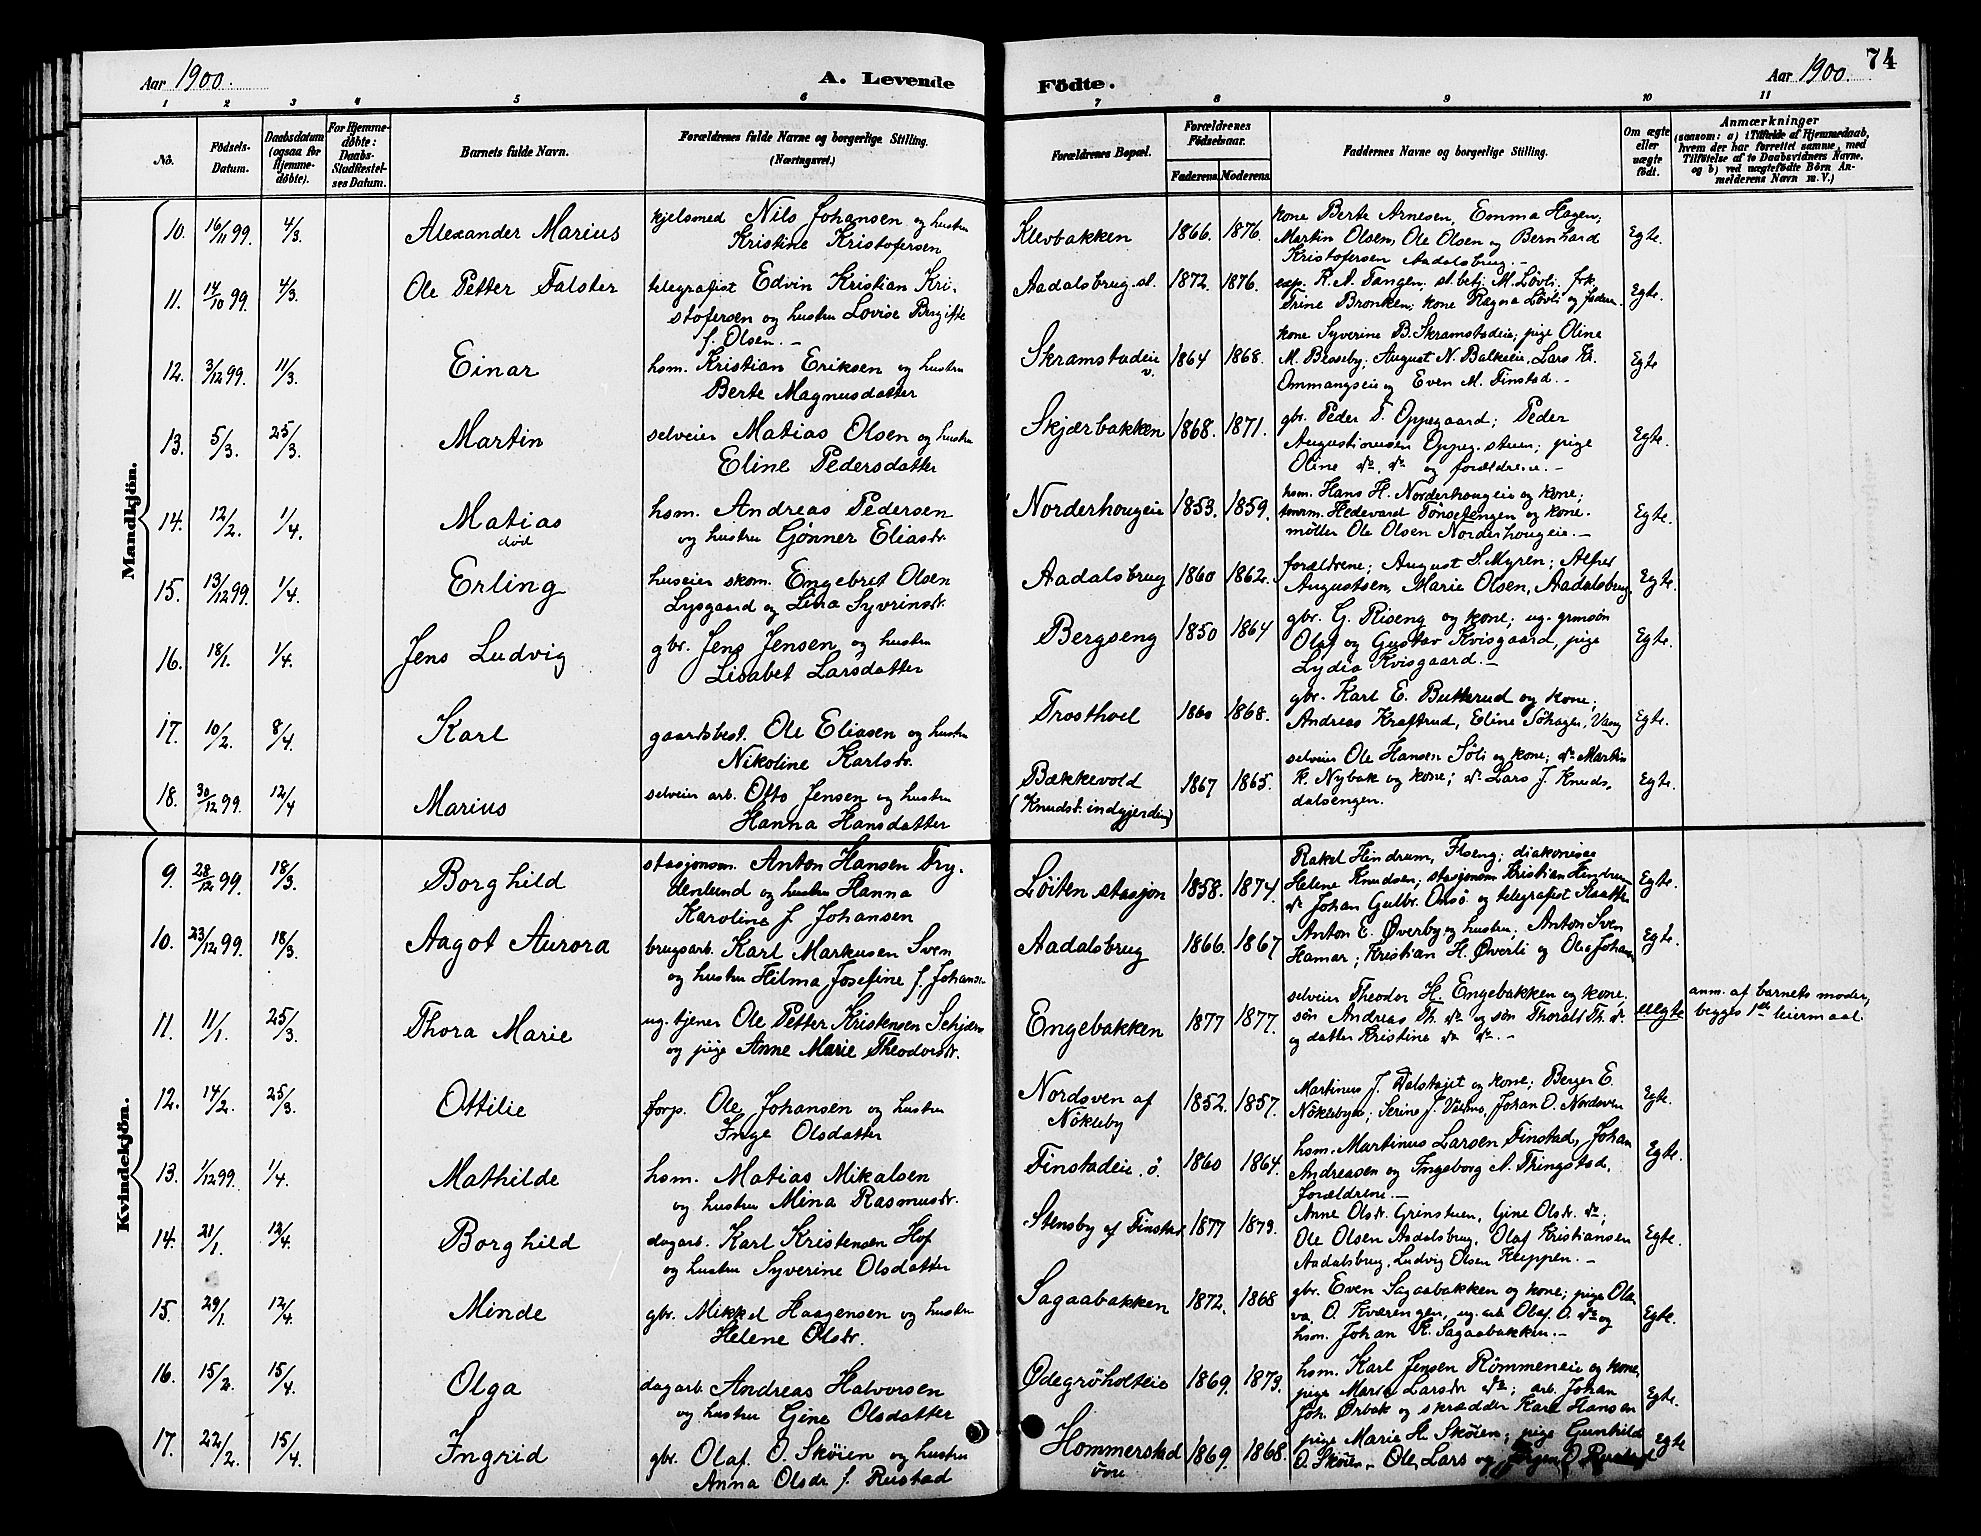 Aar 1900.
A. Levende
Födte.
Aar 1900.
74
1 2 3 4 5 6 7 8 9 10 11
No.
Födsels-Datum.
Daabsdatum (ogsaa for Hjemme-döbte).
For Hjemme-döbte: Daabs-Stadfæstel-ses Datum.
Barnets fulde Navn.
Forældrenes fulde Navne og borgerlige Stilling.
(Næringsvei.)
Forældrenes Bopæl.
Forældrenes Födselsaar.
Faderens. Moderens.
Faddernes Navne og borgerlige Stilling.
Om ægte eller uægte födt.
Anmærkninger
(saasom: a) i Tilfælde af Hjemmedaab, hvem der har forrettet samme, med Tilföielse af to Daabsvidners Navne. og b) ved uægtefödte Börn An-melderens Navn m. V.)
Mandkjön.
10. 16/11 99. 4/3. Alexander Marius
kjelsmed Nils Johansen og hustru
Kristine Kristofersen
Klevbakken 1866. 1876.
kone Berte Arnesen, Emma Hagen,
Martin Olsen, Ole Olsen og Bernhard
Kristofersen Aadalsbrug. -
Egte.
11. 14/10 99. 4/3. Ole Petter Falster
telegrafist Edvin Kristian Kri-
stofersen og hustru Lovise Bergitte
f. Olsen. -
Aadalsbrug st. 1872. 1876.
exp. R. A. Tangen, st.betj. M. Lövli, frk.
Trine Bronken; kone Ragna Lövli og faderen.
Egte.
12. 3/12 99. 11/3. Einar
hsm. Kristian Eriksen og hustru
Berte Magnusdatter
Skramstadeie v. 1864 1868.
kone Syverine B. Skramstadeie; pige Oline
M. Besseby; August N. Balkeeie, Lars Kr.
Ommangseie og Even M. Finstad. -
Egte
13. 5/3. 25/3. Martin
selveier Matias Olsen og hustru
Eline Pedersdatter
Skjærbakken 1868. 1871.
gbr. Peder T. Oppegaard; Peder
Augustinusen Oppeg.stuen; pige
Oline do. do og forældrene. -
Egte.
14. 12/2. 1/4. Matias
død
hsm. Andreas Pedersen
og hustru Gjønner Eliasdr.
Norderhougeie 1853. 1859.
hsm. Hans H. Norderhougeie og kone;
Hedevard Tønsetengen og kone.
møller Ole Olsen Norderhougeie. -
Egte.
15. 13/12 99. 1/4. Erling
huseier skom. Engebret Olsen
Lysgaard og Lina Syvrinsdr.
Aadalsbrug 1860 1862.
forældrene; August S. Myren; Alfred
Augustsen, Marie Olsen, Aadalsbrug.
Egte.
16. 18/1. 1/4. Jens Ludvig
gbr. Jens Jensen og hustru
Lisabet Larsdatter
Bergseng 1850 1864
gbr. G. Riseng og kone; ug. grmsøn
Olaf og Gustav Kvisgaard, pige
Lydia Kvisgaard. -
Egte.
17. 10/2. 8/4 Karl
gaardsbest. Ole Eliasen og hustru
Nikoline Karlsdr.
Trosthoel 1860 1868.
gbr. Karl E. Butterud og kone;
Andreas Kraftrud, Eline Söhagen, Vang
Egte.
18. 30/12 99. 12/4 Marius
selveier arb. Otto Jensen og hustru
Hanna Hansdatter
Bækkevold
(Knudst. indgjerding) 1867 1865.
selveier Ole Hansen Söli og kone; do Martin
K. Nybak og kone; do Lars J. Knuds-
dalsengen.
Egte.
Kvindekjön.
9. 28/12 99. 18/3. Borghild
stasjonsm. Anton Hansen Try-
denlund og hustru Hanna
Karoline f. Johansen
Löiten stasjon 1858. 1874.
Rakel Hindrum, Flseng; diakonisse
Helene Knudsen; stasjonsm Kristian Hindrum
do Johan Gulbr. Onsö og telegrafist Raatte
Egte.
10. 23/12 99. 18/3. Aagot Aurora
brugsarb. Karl Markusen Sven
og hustru Hilma Josefine f. Johansen
Aadalsbrug 1866. 1867
Anton E. Øverby og hustru; Anton Sven
Hamar; Kristian H. Øverli og Olea Johans
Egte.
11. 11/1. 25/3. Thora Marie
ug. tjener Ole Petter Kristensen Schjern
og pige Anne Marie Theodorsdr.
Engebakken 1877 1877.
selveier Theodor H. Engebakken og kone;
sön Andreas Th. do og sön Thoralf Th. do
og datter Kristine do do. -
Uegte
anm. af barnets moder,
begges 1ste leiermaal.
12. 14/2. 25/3. Ottilie
forp. Ole Johansen og hustru
Inge Olsdatter
Nordsven af
Nökleby 1852. 1857.
Martinus J. Dalstøjet og kone; Berger E.
Nöklebye; Serine J. , Johan O. Nordsven
Egte.
13. 1/12 99. 1/4. Mathilde
hsm. Matias Mikalsen
og hustru Mina Rasmusdr.
Finstadeie. ö. 1860 1864.
hsm. Martinus Larsen Finstad, Johan
Andreasen og Ingeborg A. Tringstad,
forældrene. -
Egte.
14. 21/1. 12/4. Borghild
dagarb. Karl Kristensen Hof
og hustru Syverine Olsdatter
Stensby af Finstad 1877 1873.
Anne Olsdr. Grinstuen, Gine Olsdr. do;
Ole Olsen Aadalsbrug, Olaf Kristiansen
Aadalsbrug, Ludvig Olsen Kleppen. -
Egte.
15. 29/1. 12/4. Minde
gbr. Mikkel Haagensen og hustru
Helene Olsdr.
Sagaabakken 1872. 1868
gbr. Even Sagaabakken og kone; pige Ole-
va, O. Kværengen, ug. arb. Olaf O. do og
hsm. Johan K. Sagaabakken. -
Egte.
16. 15/2. 15/4. Olga
dagarb. Andreas Halvorsen
og hustru Gine Olsdatter
Ødegröholteie 1869. 1873.
hsm. Karl Jensen Römmeneie og kone,
pige Marie Larsdr do; arb. Johan
Joh. Ørbak og skrædder Karl Hansen
Egte.
17. 22/2. 15/4. Ingrid
gbr. Olaf O. Sköien og hustru
Anna Olsdr f. Rustad
Hommerstad
övre 1869. 1868.
pige Marie H. Sköien; pige Gunhild
O. Sköien. Ole, Lars og Jörgen O. Rustad
Egte